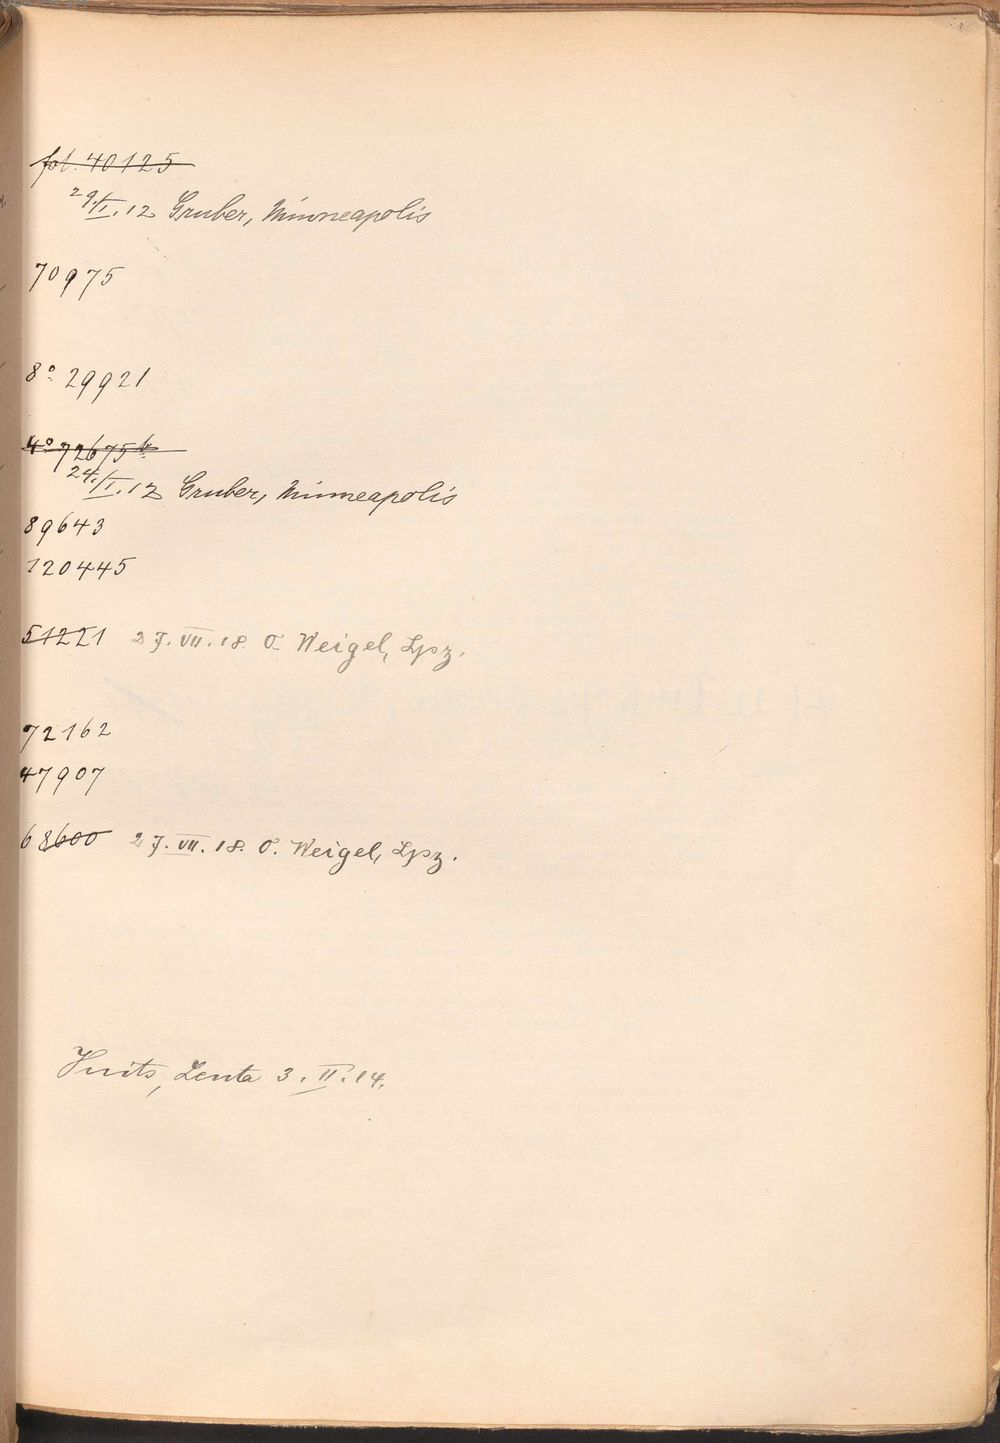 fol. 40125
29./I.12 Gruber, Minneapolis
70975
8° 29921
4° 72675b
24./I.12 Gruber, Minneapolis
89643
120445
51221 27.VII.18. O. Weigel, Lpz.
72162
47907
68600 27.VII.18. O. Weigel, Lpz.
Zenta 3.II.14.